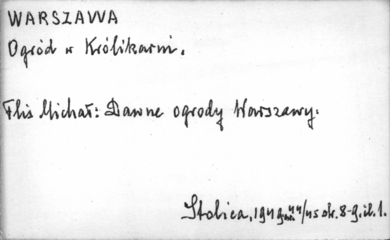 WARSZAWA
Ogród w Królikarni.
Flis Michał: Dawne ogrody Warszawy.
Stolica, 1949 nr 44/45 str. 8-9, il. 1.